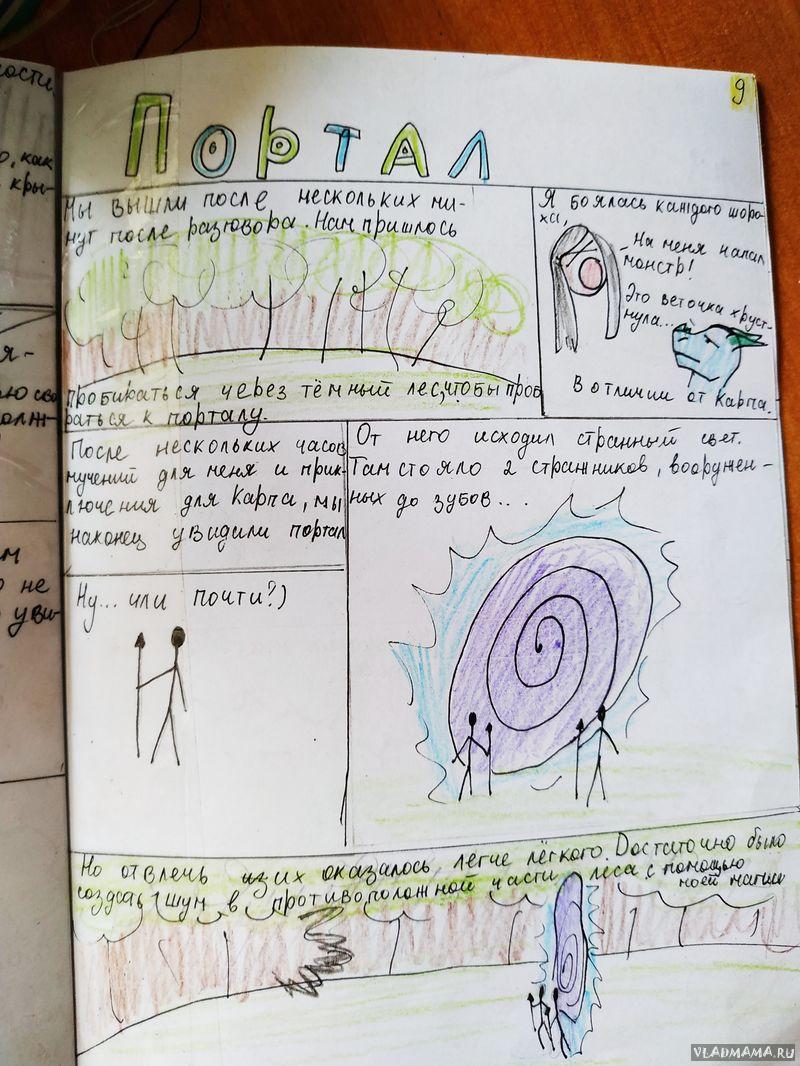 ости,
о, как
кры-
я-
ью сво
олж-
м
о не
уви-
9
Портал
Мы вышли после нескольких ми-
нут после разговора. Нам пришлось
пробираться через тёмный лес, чтобы проб
раться к порталу.
Я боялась каждого шоро-
ха,
На меня напал
монстр!
Это веточка хруст-
нула...
В отличии от Карпа.
После нескольких часов
мучений для меня и прик-
лючения для Карпа, мы
наконец увидили портал
Ну... или почти?)
От него исходил странный свет.
Там стояло 2 стражников, вооружен-
ных до зубов...
Но отвлечь их оказалось легче лёгкого. Достаточно было
создать шум в противоположной части леса с помощью
моей магии
VLADMAMA.RU